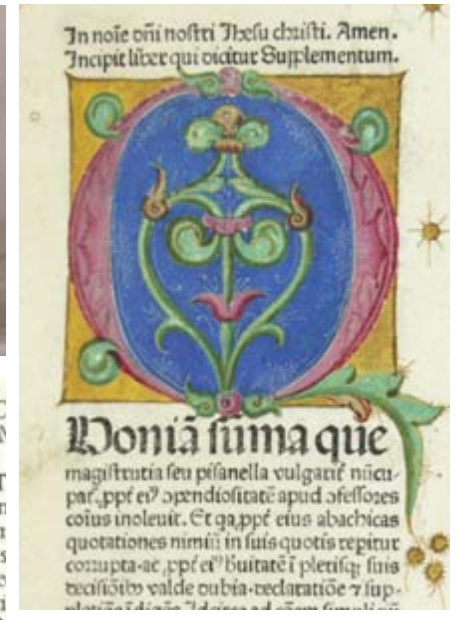 In noīe dn̄i nostri Jhesu christi. Amen.
Incipit liber qui dicitur Supplementum.
Q
Uoniā sum̄a que
magistrutia seu pisanella vulgarit̄ nūcu-
pat̄ ,ppt̄ ei⁹ ɔpendiositatē apud ɔfessores
cōius inoleuit. Et qa,ppt̄ eius abachicas
quotationes nimiū in suis quotis repitur
corrupta-ac ,ppt̄ ei⁹ buitatē ī pletisqȝ suis
decisiōibȝ valde dubia-declaratiōe ⁊ sup-